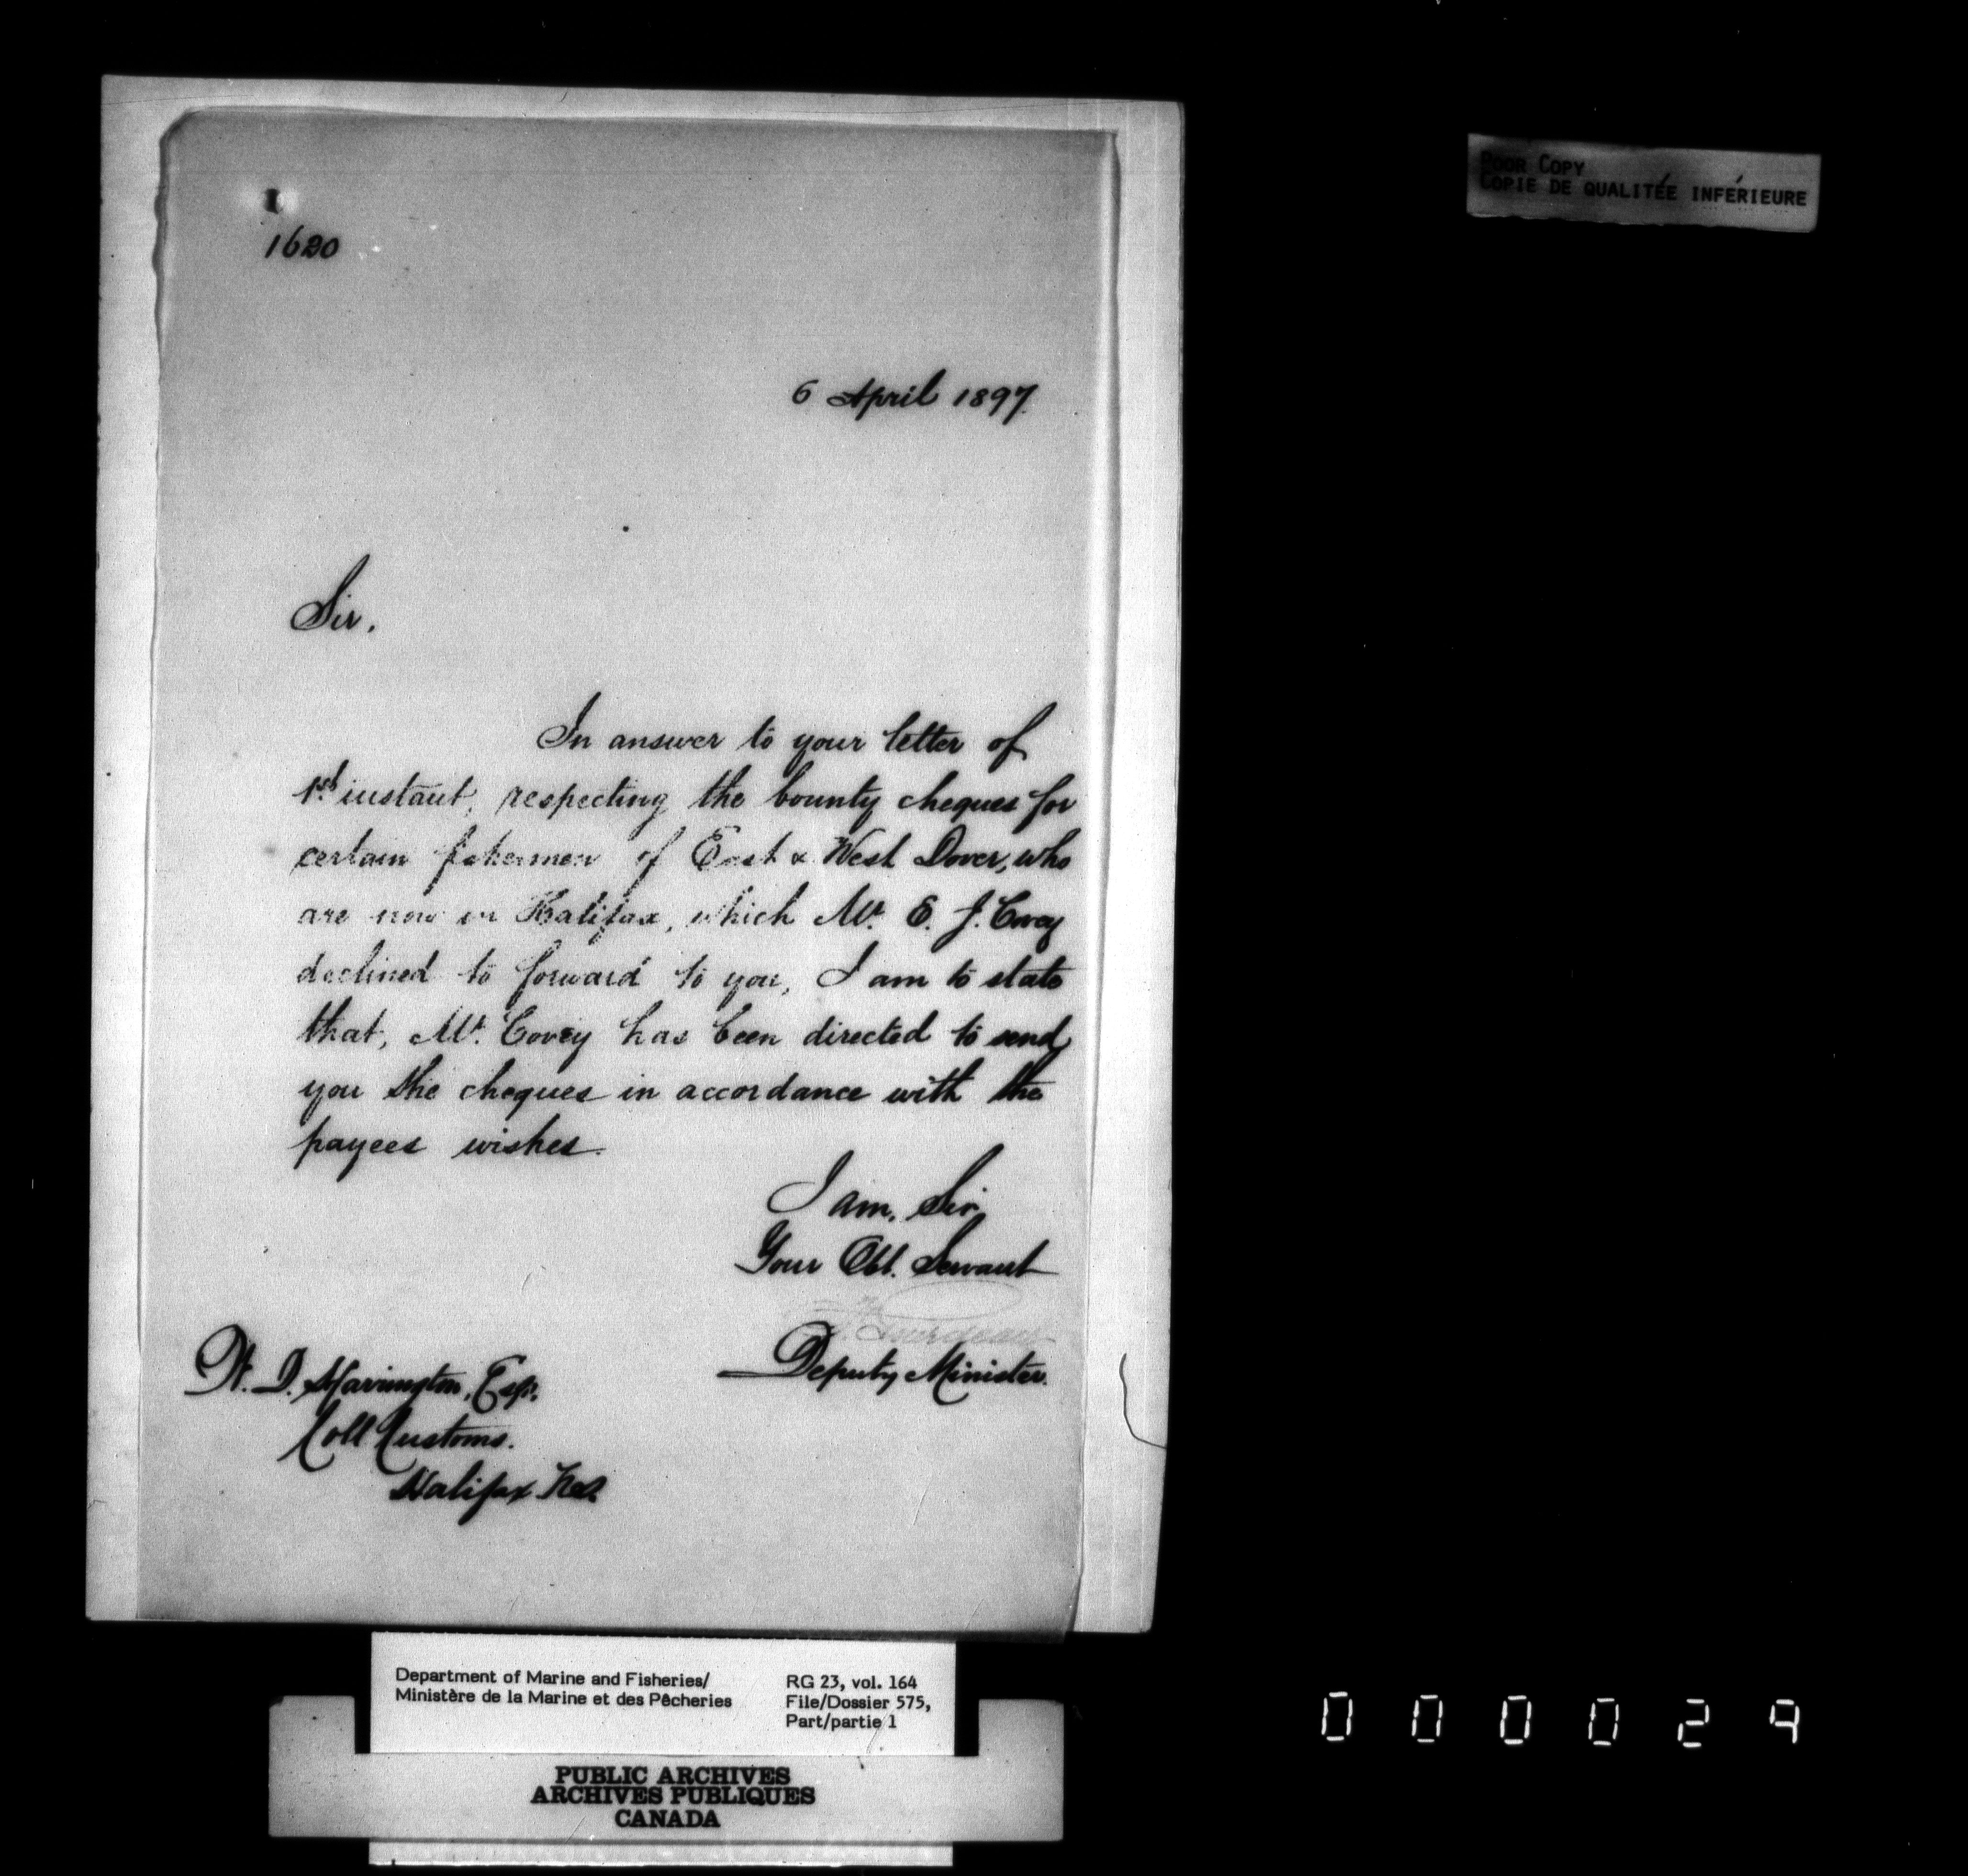 1620
6 April 1897.
Sir,
In answer to your letter of
1st instant, respecting the bounty cheques for
certain fishermen of East & West Dover, who
are now in Halifax, which Mr. E. J. Covey
declined to forward to you, I am to state
that, Mr. Covey has been directed to send
you the cheques in accordance with the
payees wishes.
I am, Sir,
Your Obt. Servant
Deputy Minister.
W. D. Harrington, Esq.
Coll Customs.
Halifax N.S.
POOR COPY
COPIE DE QUALITÉE INFÉRIEURE
Department of Marine and Fisheries/
Ministère de la Marine et des Pêcheries
RG 23, vol. 164
File/Dossier 575,
Part/partie 1
PUBLIC ARCHIVES
ARCHIVES PUBLIQUES
CANADA
000029